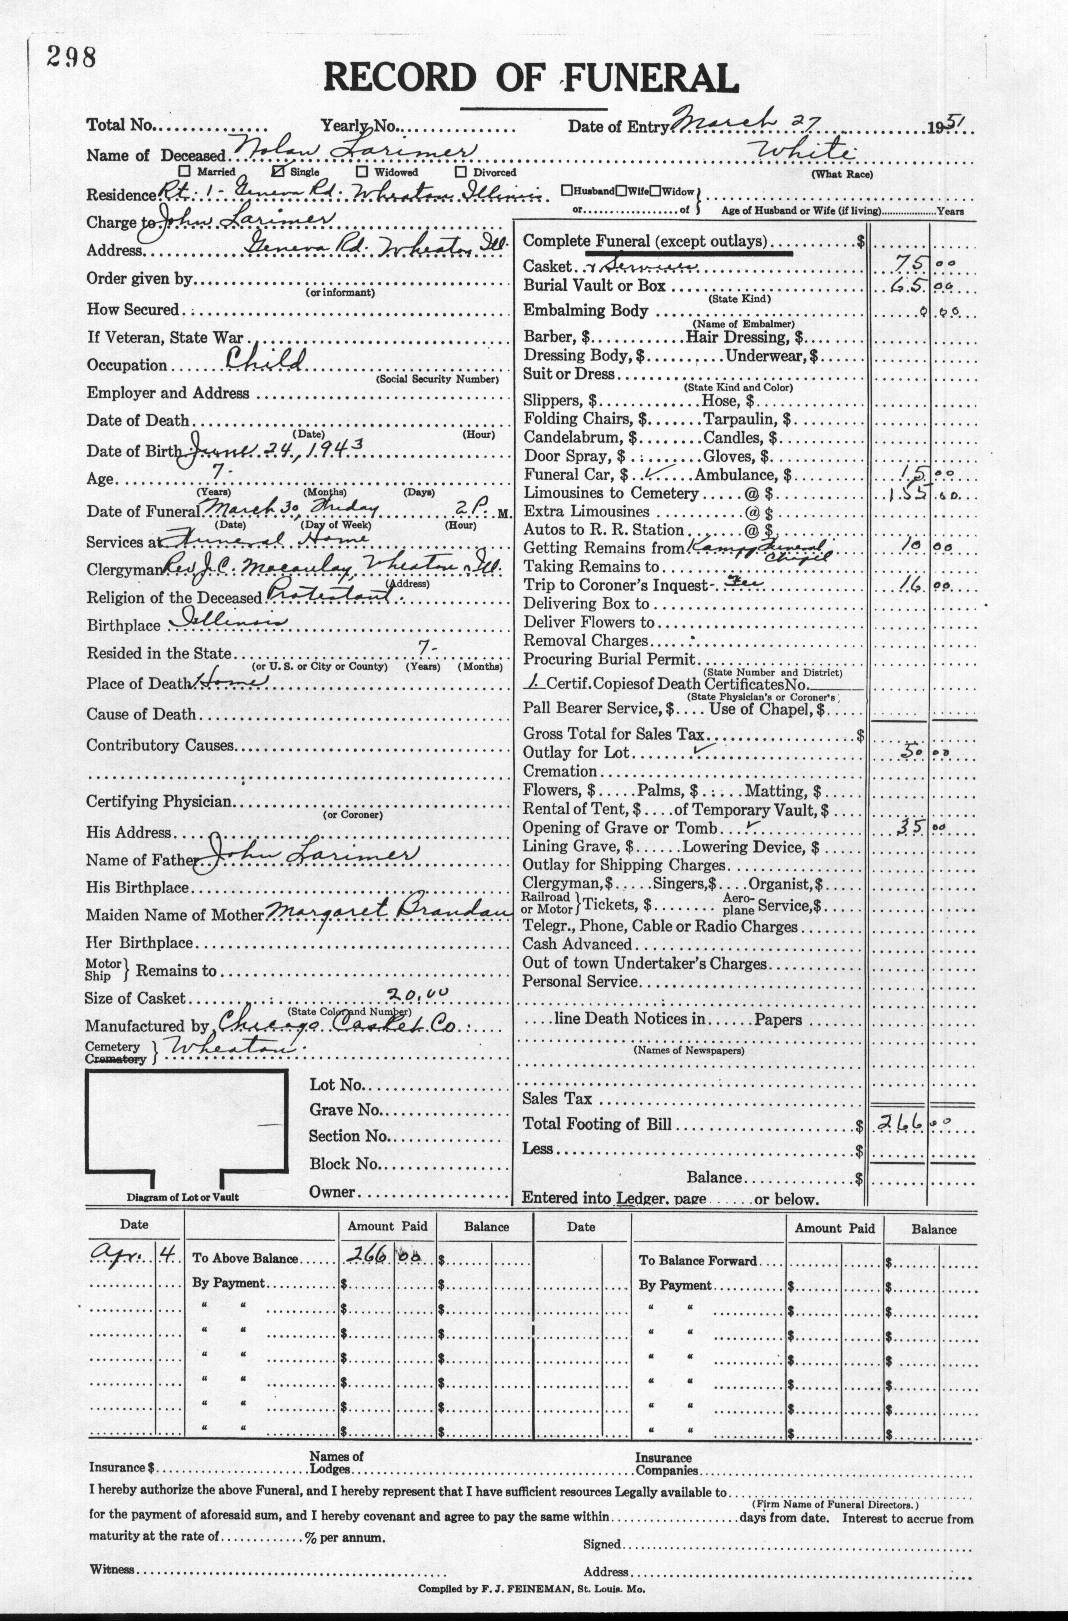 298
RECORD OF FUNERAL
Total No............... Yearly No............... Date of Entry March 27 1951
Name of Deceased Nolan Larimer White
☐ Married ☑ Single ☐ Widowed ☐ Divorced (What Race)
Residence Rt. 1 - Geneva Rd. Wheaton Illinois. ☐Husband ☐Wife ☐Widow }
or..................of } Age of Husband or Wife (if living)..................Years
Charge to John Larimer
Address Geneva Rd. Wheaton Ill.
Order given by
(or informant)
How Secured
If Veteran, State War
Occupation Child
(Social Security Number)
Employer and Address
Date of Death
(Date) (Hour)
Date of Birth June 24, 1943
Age 7
(Years) (Months) (Days)
Date of Funeral March 30, Friday 2 P. M.
(Date) (Day of Week) (Hour)
Services at Funeral Home
Clergyman Rev J.C. Macaulay, Wheaton, Ill.
(Address)
Religion of the Deceased Protestant.
Birthplace Illinois
Resided in the State 7-
(or U. S. or City or County) (Years) (Months)
Place of Death Home
Cause of Death
Contributory Causes
Certifying Physician
(or Coroner)
His Address
Name of Father John Larimer
His Birthplace
Maiden Name of Mother Margaret Brandau
Her Birthplace
Motor Ship } Remains to
Size of Casket 20.00
(State Color and Number)
Manufactured by Chicago Casket Co.
Cemetery Crematory } Wheaton.
Lot No.
Grave No.
Section No.
Block No.
Owner
Diagram of Lot or Vault
Complete Funeral (except outlays) $
Casket & Services 75 00
Burial Vault or Box 65 00
(State Kind)
Embalming Body 0 00
(Name of Embalmer)
Barber, $ Hair Dressing, $
Dressing Body, $ Underwear, $
Suit or Dress
(State Kind and Color)
Slippers, $ Hose, $
Folding Chairs, $ Tarpaulin, $
Candelabrum, $ Candles, $
Door Spray, $ Gloves, $
Funeral Car, $ ✓ Ambulance, $ 15 00
Limousines to Cemetery @ $ 155 00
Extra Limousines @ $
Autos to R. R. Station @ $
Getting Remains from Kampp Funeral Chapel 10 00
Taking Remains to
Trip to Coroner's Inquest - Fee 16 00
Delivering Box to
Deliver Flowers to
Removal Charges
Procuring Burial Permit
(State Number and District)
1 Certif. Copies of Death Certificates No.
(State Physician's or Coroner's
Pall Bearer Service, $ Use of Chapel, $
Gross Total for Sales Tax $
Outlay for Lot ✓ 50 00
Cremation
Flowers, $ Palms, $ Matting, $
Rental of Tent, $ of Temporary Vault, $
Opening of Grave or Tomb ✓ 35 00
Lining Grave, $ Lowering Device, $
Outlay for Shipping Charges
Clergyman, $ Singers, $ Organist, $
Railroad or Motor } Tickets, $ Aero-plane Service, $
Telegr., Phone, Cable or Radio Charges
Cash Advanced
Out of town Undertaker's Charges
Personal Service
line Death Notices in Papers
(Names of Newspapers)
Sales Tax
Total Footing of Bill $ 266 00
Less $
Balance $
Entered into Ledger, page ...... or below.
Date Amount Paid Balance Date Amount Paid Balance
Apr. 4 To Above Balance 266 00 $ To Balance Forward $
By Payment $ $ By Payment $ $
“ “ $ $ “ “ $ $
“ “ $ $ “ “ $ $
“ “ $ $ “ “ $ $
“ “ $ $ “ “ $ $
“ “ $ $ “ “ $ $
“ “ $ $ “ “ $ $
Insurance $ Names of Lodges Insurance Companies
I hereby authorize the above Funeral, and I hereby represent that I have sufficient resources Legally available to
(Firm Name of Funeral Directors.)
for the payment of aforesaid sum, and I hereby covenant and agree to pay the same within days from date. Interest to accrue from
maturity at the rate of % per annum.
Signed
Witness Address
Compiled by F. J. FEINEMAN, St. Louis. Mo.